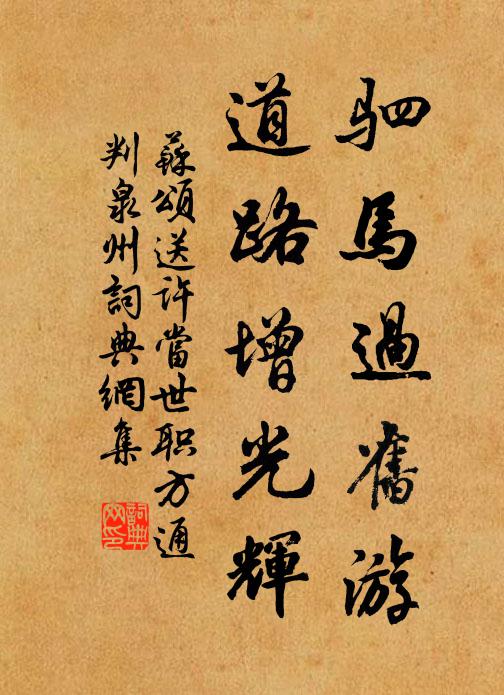 駟馬過舊游
道路增光輝
蘇頌送許當世职方通
判泉州詞典網集
詞典
网印